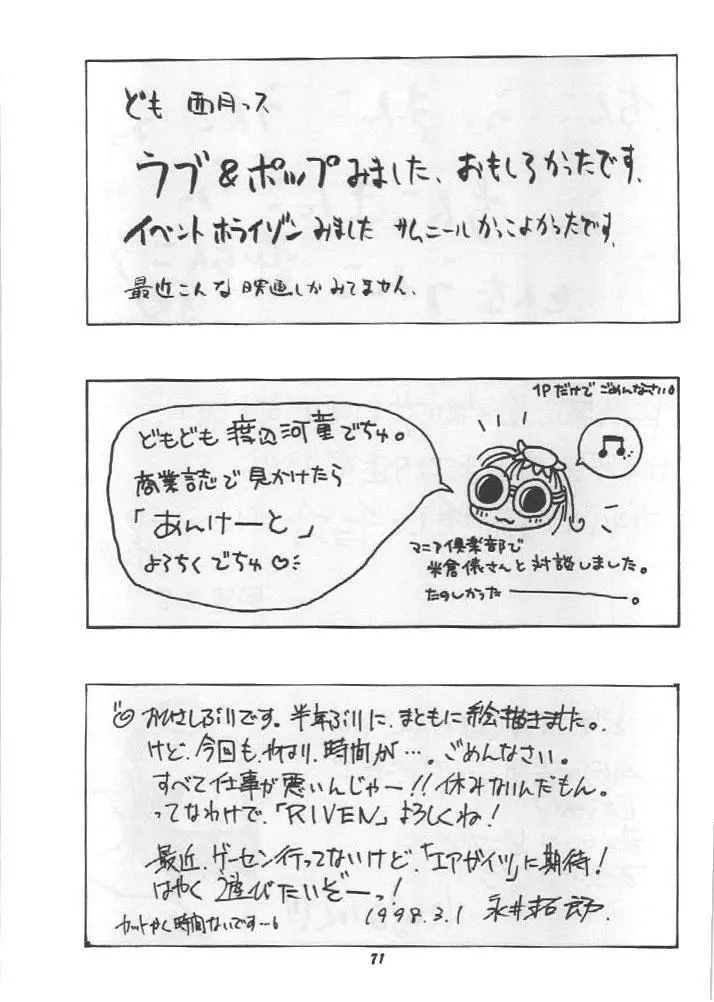 ども 西月っス
ラブ&ポップみました、おもしろかったです。
イベントホライゾンみました サムニールかっこよかったです。
最近こんな映画しかみてません。
1Pだけでごめんなさい。
どもども 渡辺河童でちゅ。
商業誌で見かけたら
「あんけーと」
よろちくでちゅ♡
マニア倶楽部で
米倉俵さんと対談しました。
たのしかった―――。
おひさしぶりです。半年ぶりに、まともに絵描きました。
けど、今回も、やはり、時間が…。ごめんなさい。
すべて仕事が悪いんじゃー!!休みないんだもん。
ってなわけで、「RIVEN」よろしくね!
最近、ゲーセン行ってないけど、「エアガイツ」に期待!
はやく遊びたいぞーっ!
1998.3.1 永井拓郎.
カットかく時間ないです…。
71